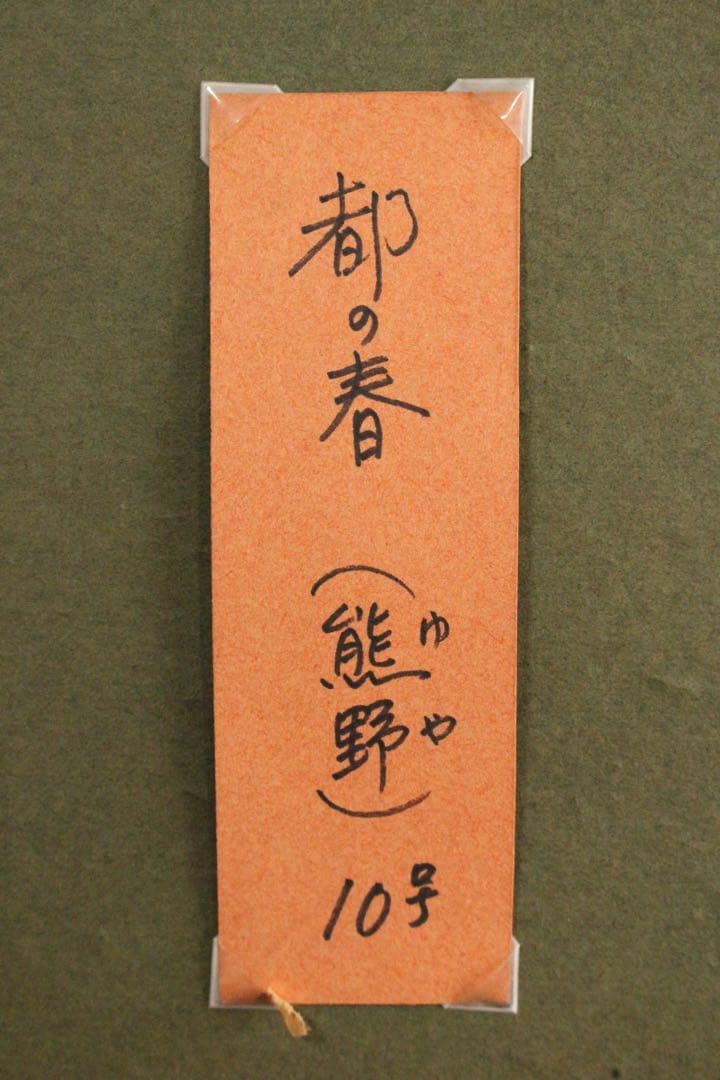 都の春
(熊野)
ゆや
10号